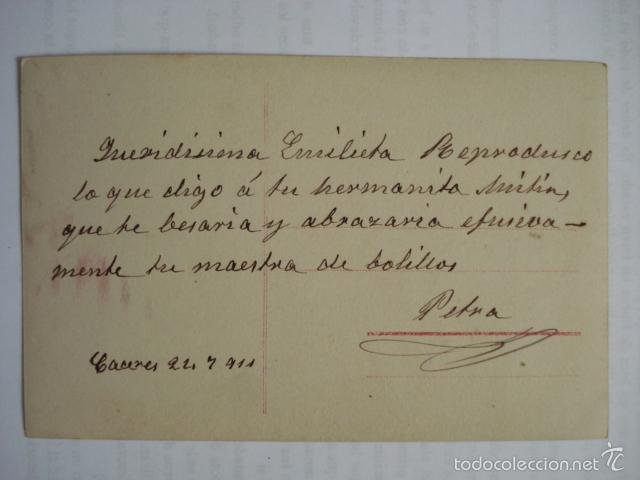 Queridisima Emilieta Reprodusco
lo que digo á tu hermanita
que te besaria y abrazaria efusiva-
mente tu maestra de bolillos
Petra
Caceres 22 7 911
todocoleccion.net